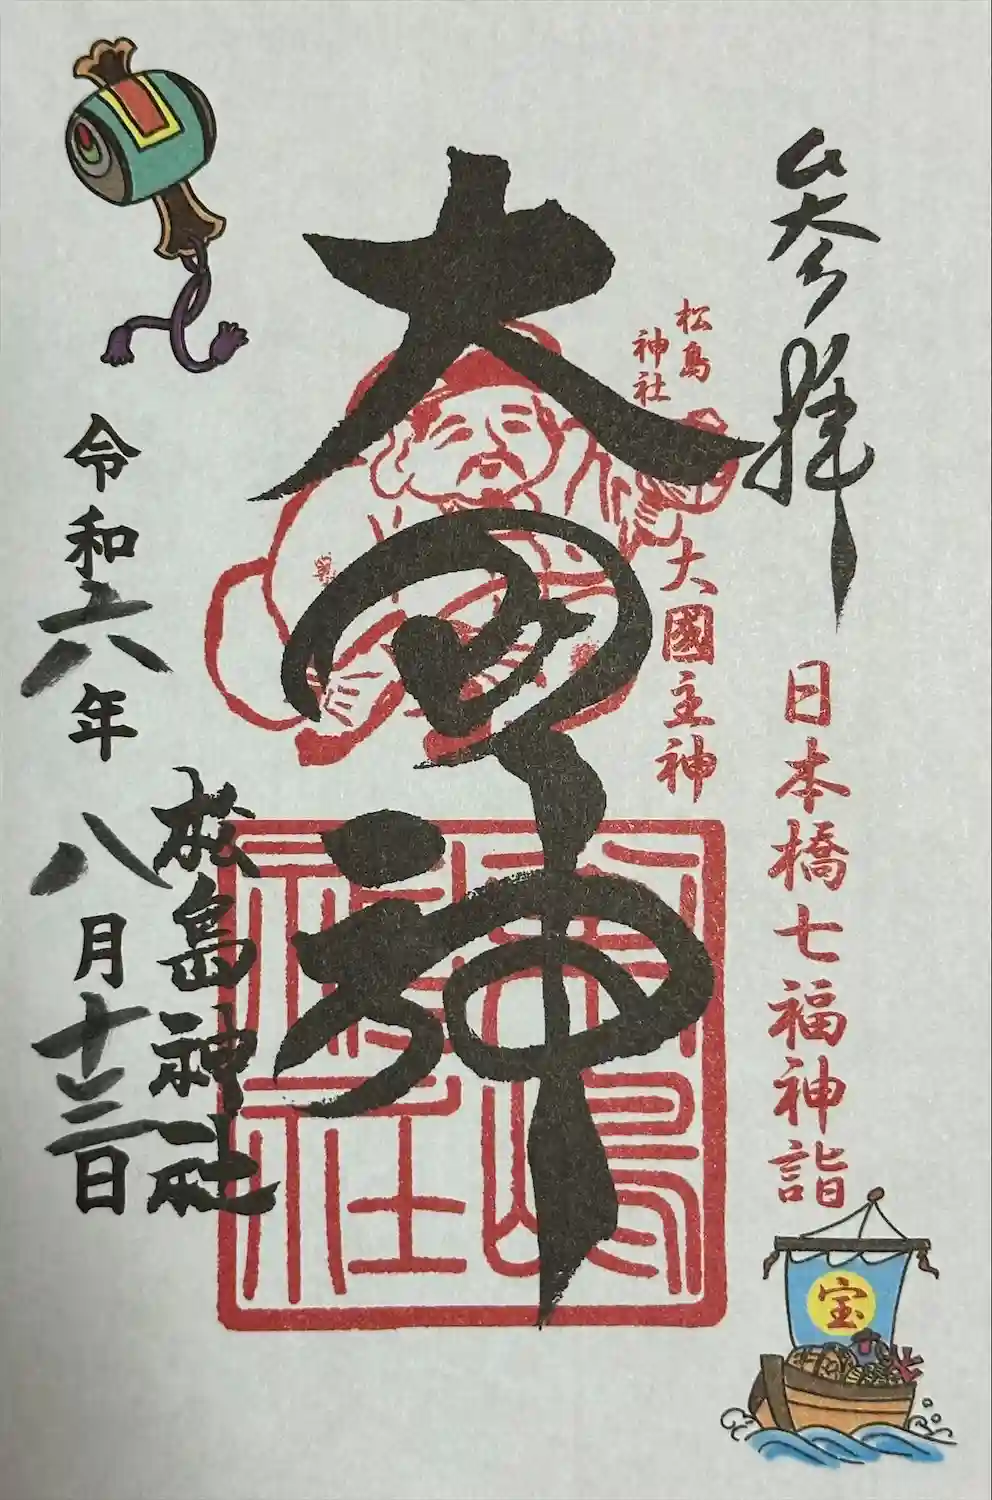 参拝
日本橋七福神詣
松島
神社
大國主神
大国神
松嶋
神社
松島神社
令和六年八月十三日
宝